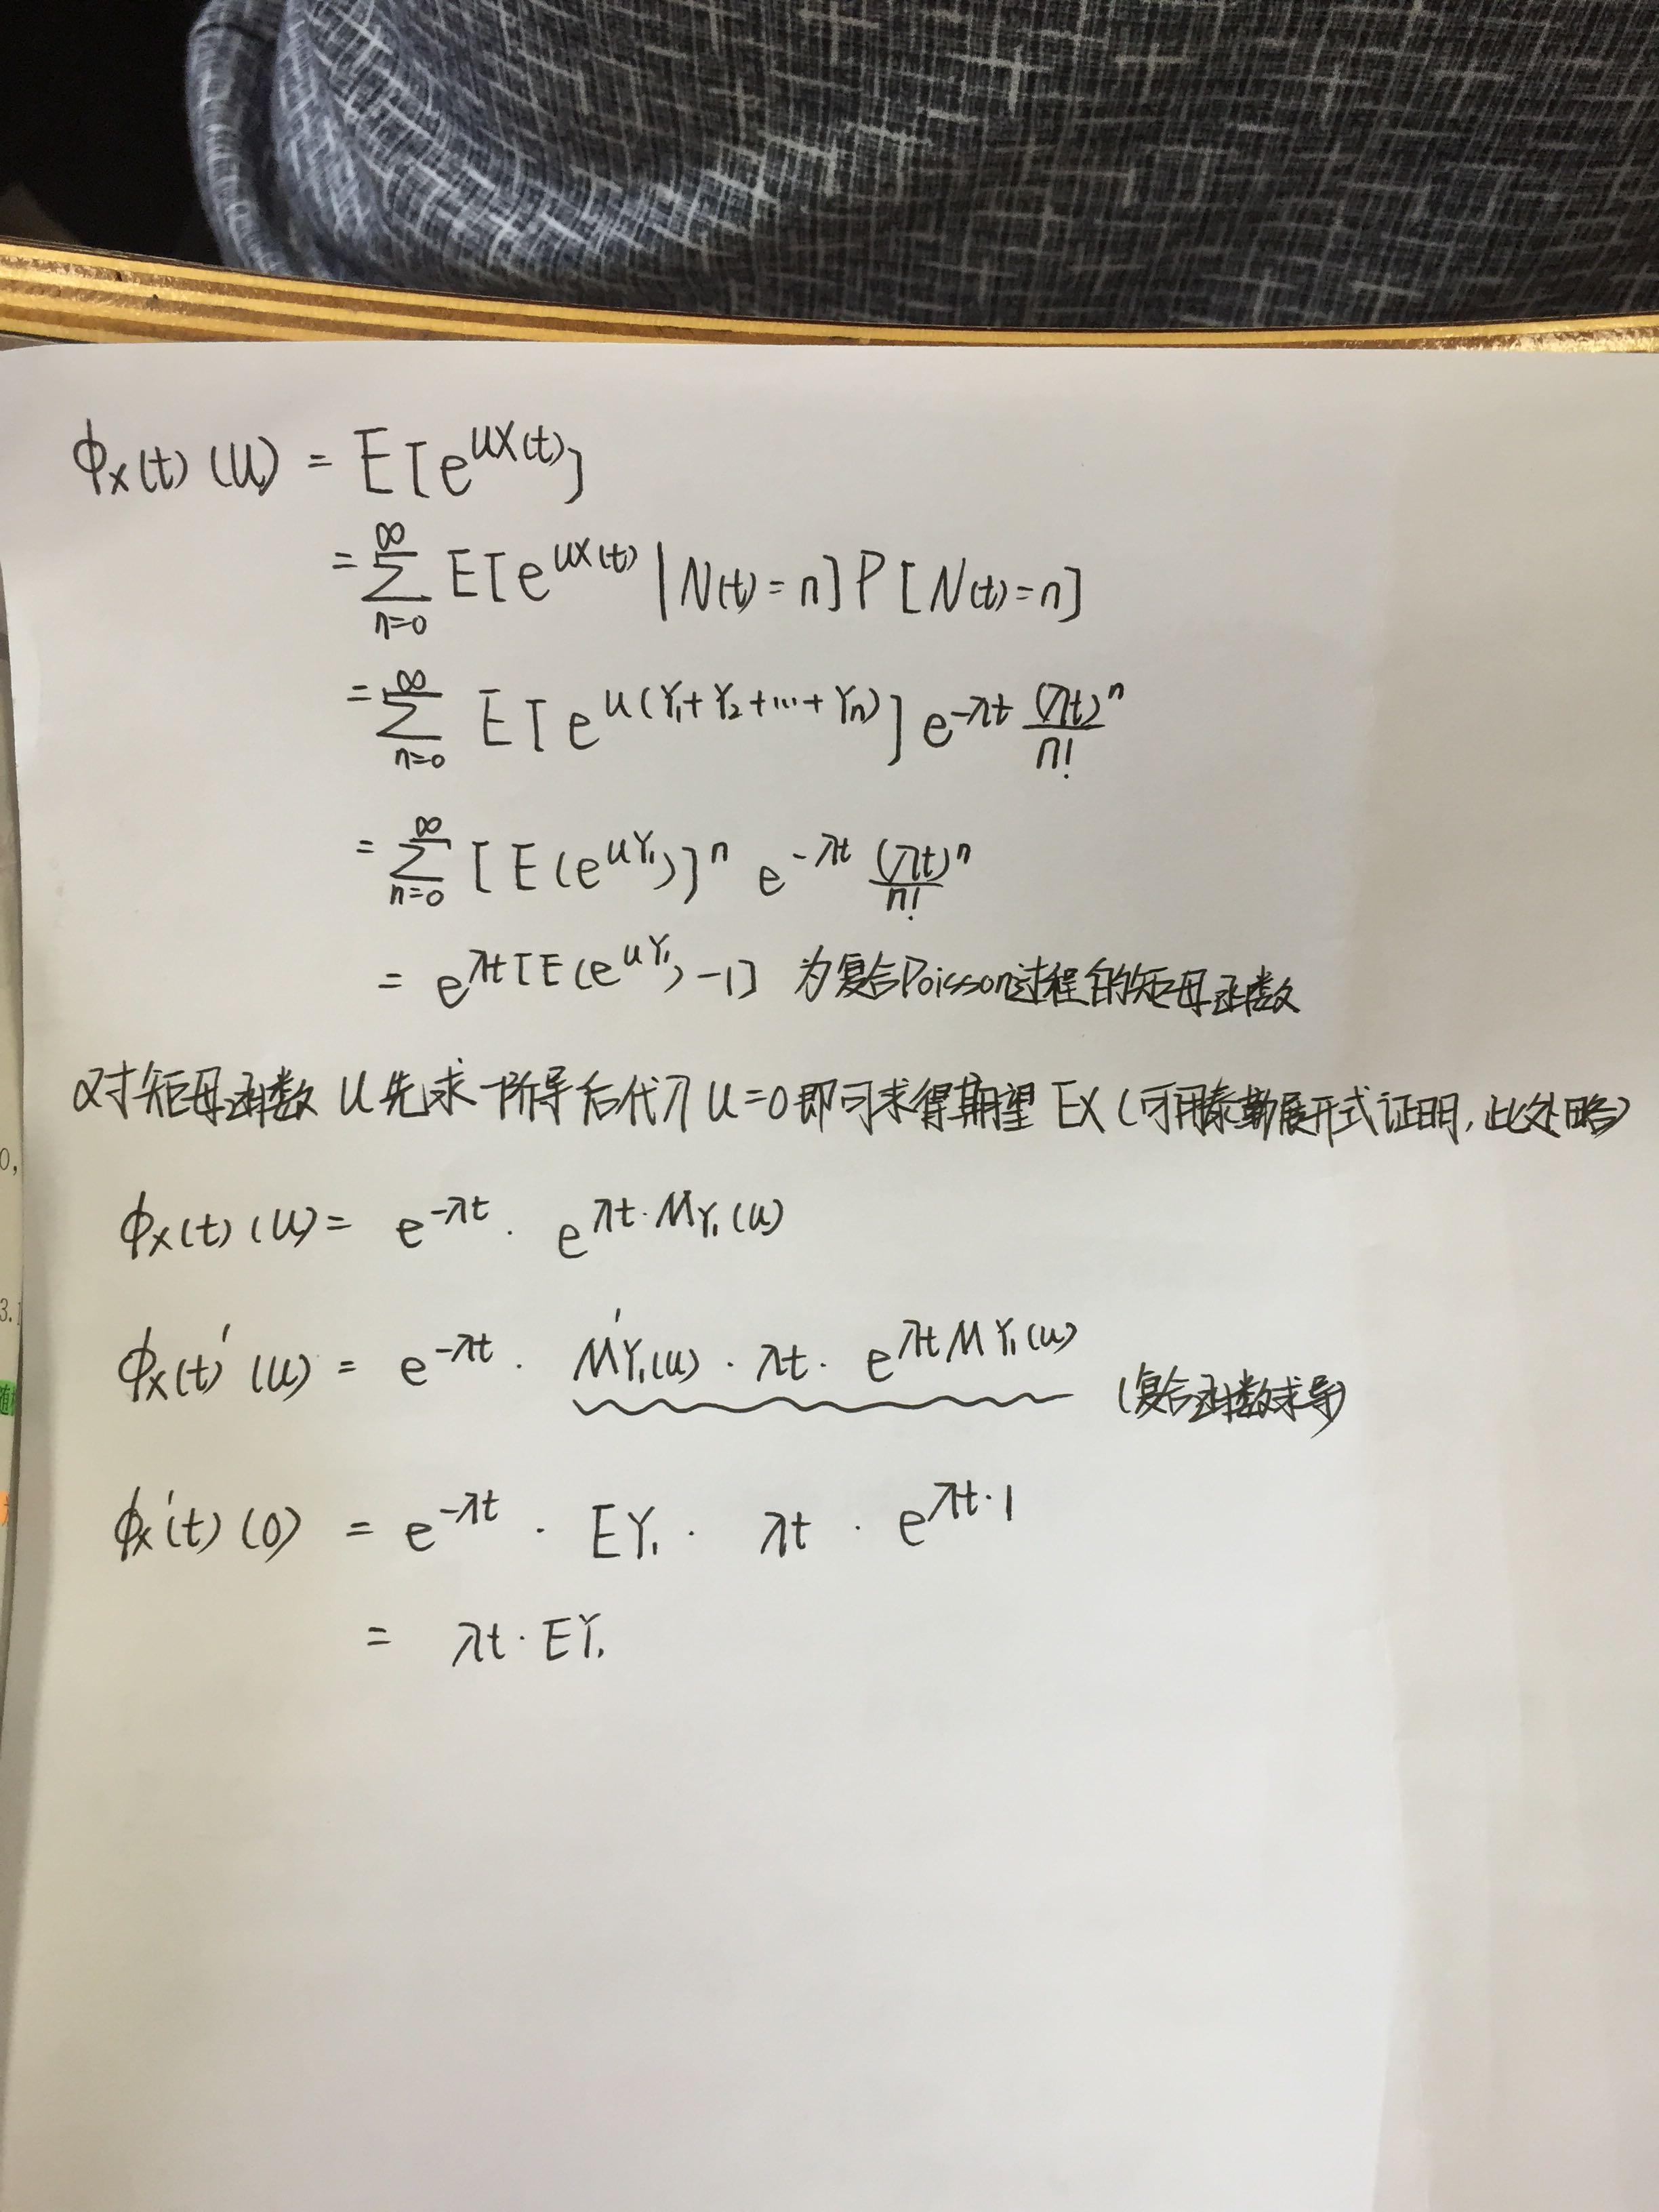 ϕ_X(t) (u) = E[e^{uX(t)}]
= \sum_{n=0}^{∞} E[e^{uX(t)} | N(t)=n] P[N(t)=n]
= \sum_{n=0}^{∞} E[e^{u(Y_1+Y_2+…+Y_n)}] e^{-λt} \frac{(λt)^n}{n!}
= \sum_{n=0}^{∞} [E(e^{uY_1})]^n e^{-λt} \frac{(λt)^n}{n!}
= e^{λt[E(e^{uY_1})-1]} 为复合Poisson过程的矩母函数
对矩母函数 u 先求一阶导后代入 u=0 即可求得期望 EX (可用泰勒展开式证明,此处略)
0,
ϕ_X(t) (u) = e^{-λt} · e^{λt·M_{Y_1}(u)}
3.1
ϕ_X(t)' (u) = e^{-λt} · M'_{Y_1}(u) · λt · e^{λt M_{Y_1}(u)} (复合函数求导)
随
ϕ_X'(t) (0) = e^{-λt} · EY_1 · λt · e^{λt·1}
= λt · EY_1